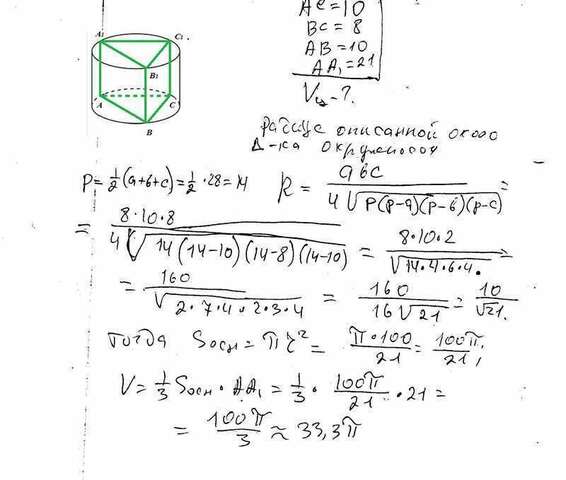 AC=10
BC=8
AB=10
AA₁=21
Vц-?
A₁ C₁
B₁
A C
B
Радиус описанной около
Δ-ка окружности
P=½(a+b+c)=½·28=14 R= abc / 4√P(P-a)(P-b)(P-c) =
= 8·10·8 / 4√14(14-10)(14-8)(14-10) = 8·10·2 / √14·4·6·4. =
= 160 / √2·7·4·2·3·4 = 160 / 16√21 = 10 / √21.
тогда Sосн=πr²= π·100 / 21 = 100π / 21,
V=⅓Sосн·AA₁=⅓· 100π / 21 ·21=
= 100π / 3 ≈ 33,3π